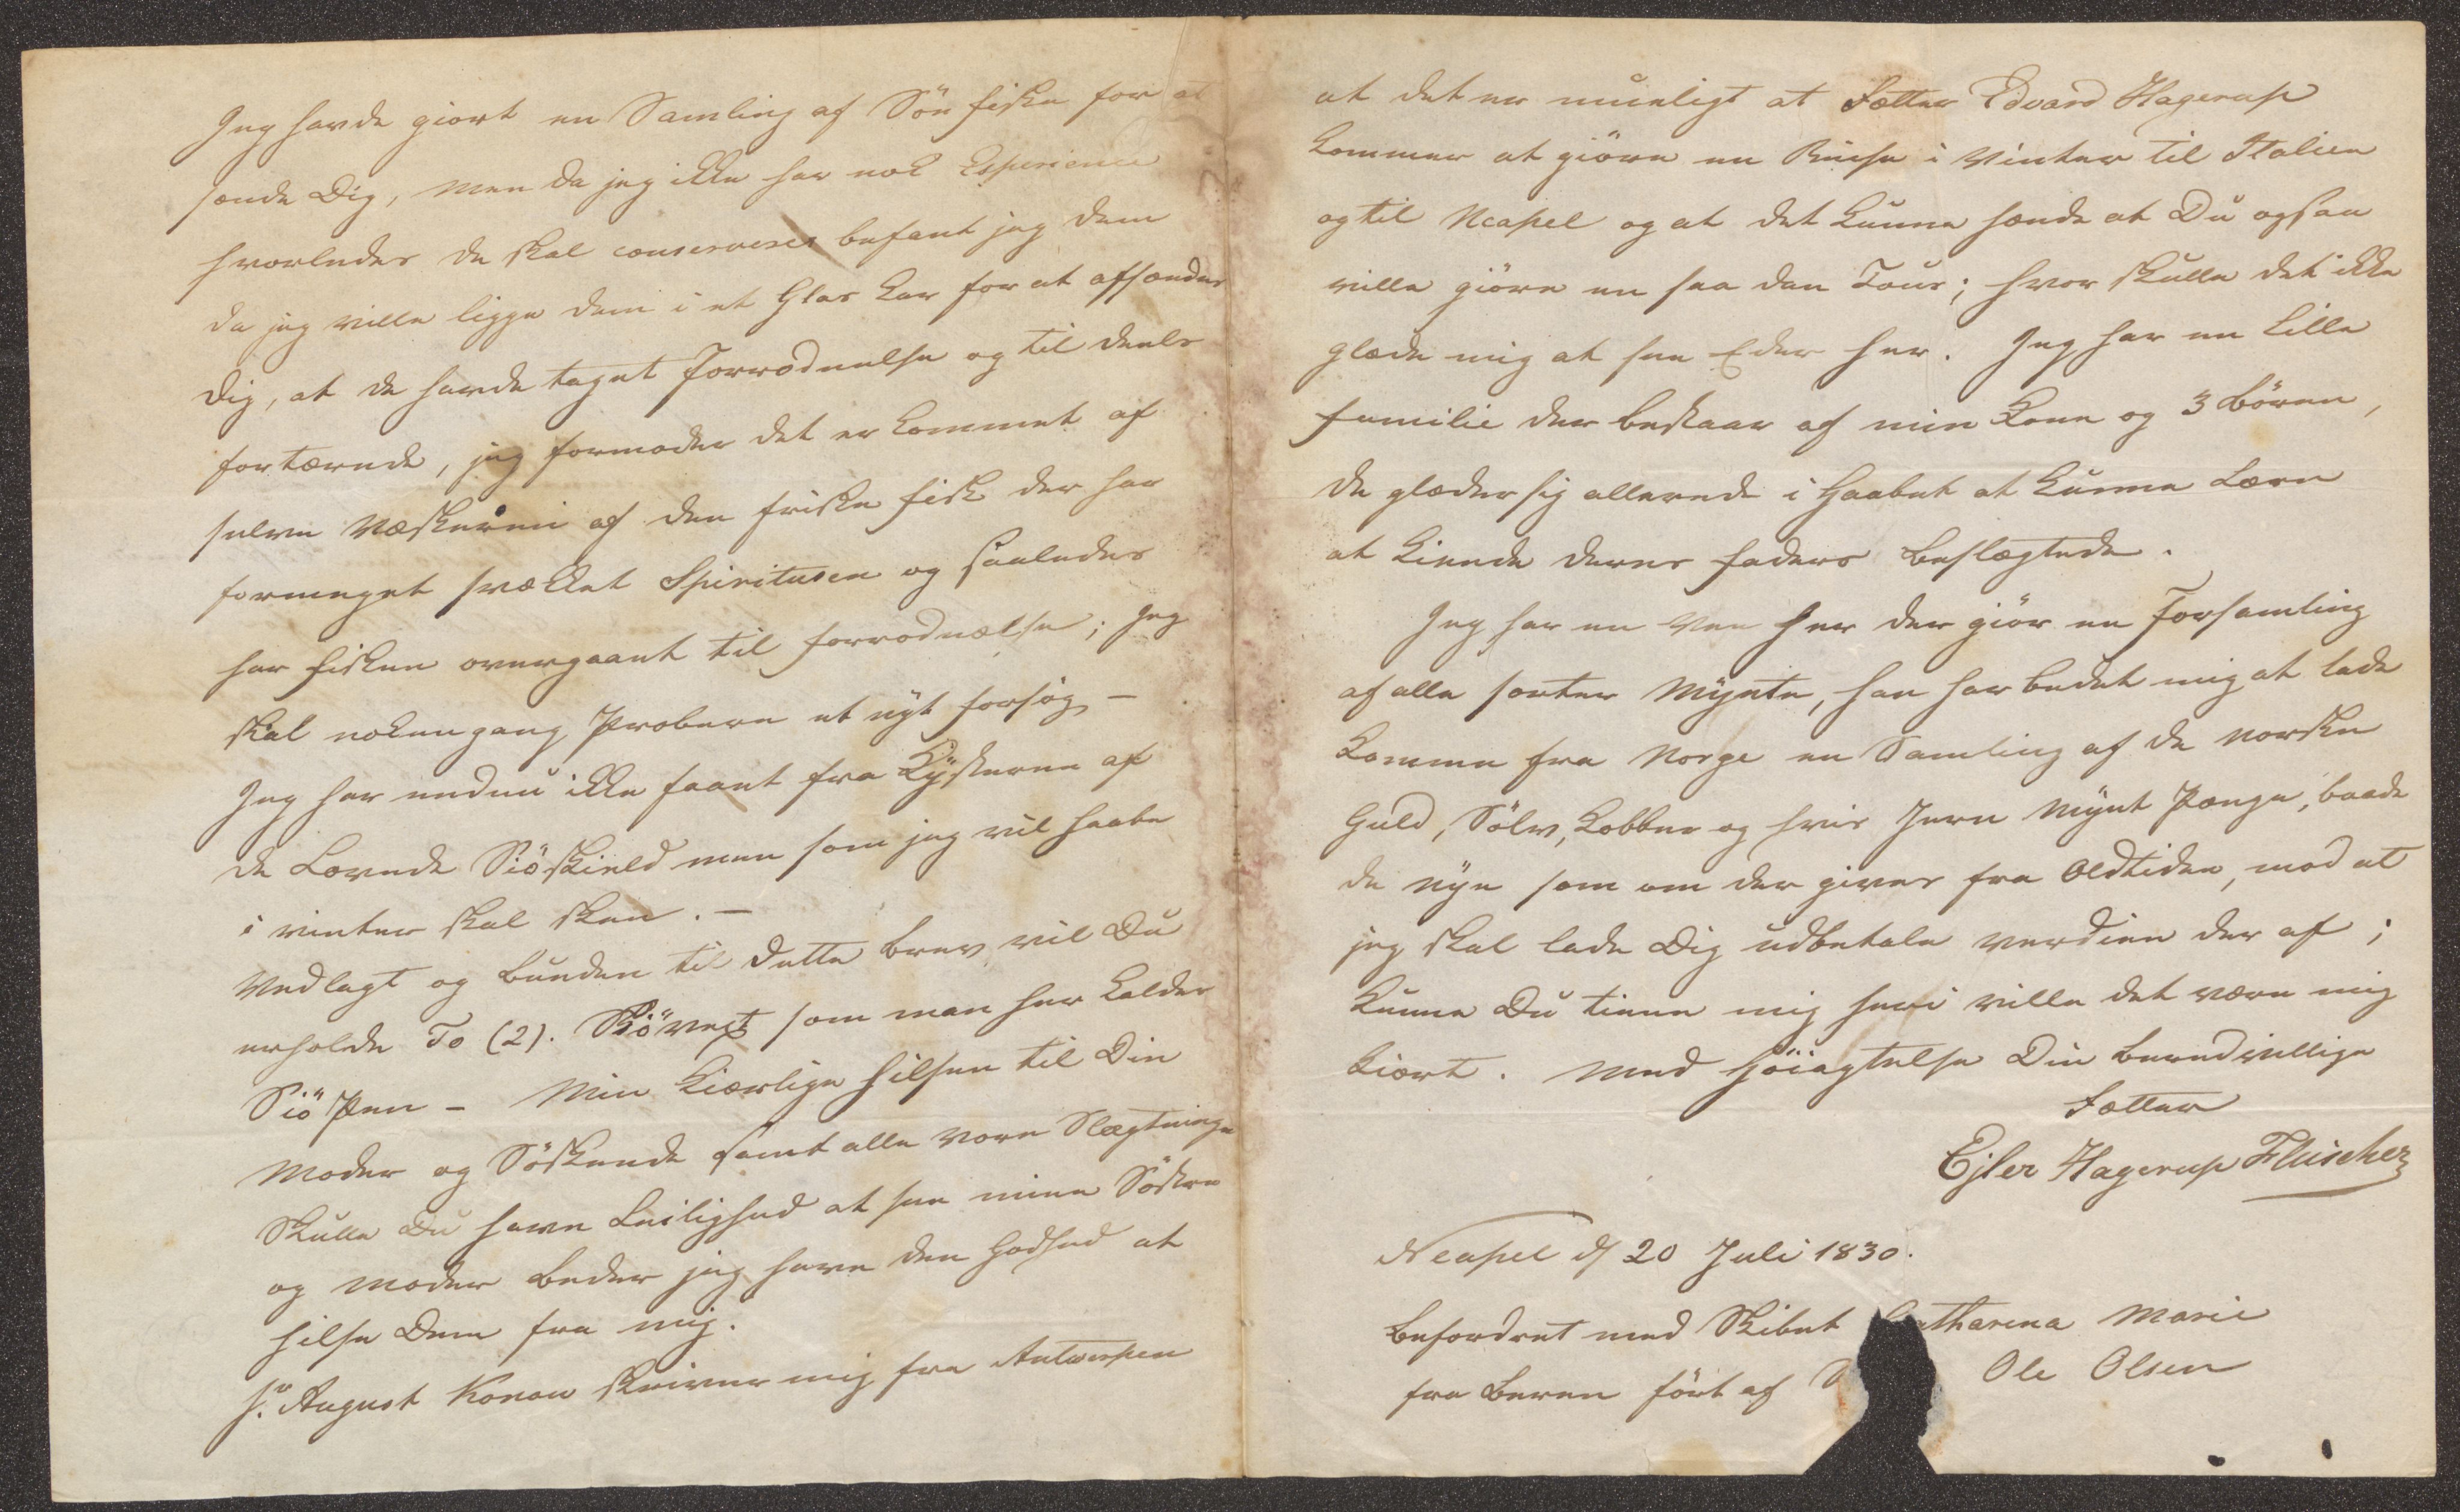 Jeg havde giort en Samling af Söe fiske for at
sende Dig, men da jeg ikke har nok Esperience
hvorledes de skal conserveres befant jeg dem
da jeg ville ligge dem i et Glas Kar for at afsendes
Dig, at de havde taget Forrodnelse og til deels
fortærede, jeg formoder det er kommet af
selve Væskerne af den friske fisk der har
formeget svækket Spiritusen og saaledes
har fisken overgaaet til forrodnelse; Jeg
skal nok engang Probere et nyt forsög, -
Jeg har endnu ikke faaet fra Kysterne af
de Lovede Siöskield men som jeg vil haabe
i vinter skal skee. -
Vedlagt og bunden til dette brev vil Du
erholde To (2). Siövext som man her kalder
Siö Pen - Min Kiærlige hilsen til Din
Moder og Söskende samt alle vore Slægtninge
Skulle Du have Leilighed at see mine Söstre
og Moder beder jeg have den Godhed at
hilse Dem fra mig.
Hr. August Konow skriver mig fra Antwerpen
at det er mueligt at Fætter Edvard Hagerup
kommer at giöre en Reise i Vinter til Italien
og til Neapel og at det kunne hænde at Du ogsaa
ville giöre en saa dan Tour; hvor skulle det ikke
glæde mig at see Eder her. Jeg har en lille
familie der bestaar af min Kone og 3 Börn,
de glæder sig allerede i Haabet at kunne Lære
at kiende deres faders beslægtede.
Jeg har en Ven her der giör en Forsamling
af alle sorter Mynte, han har bedet mig at lade
komme fra Norge en Samling af de norske
Guld, Sölv, Kobber og hvis Jern Mynt Penge, baade
de nye som om der gives fra Oldtiden, mod at
jeg skal lade Dig udbetale verdien der af;
kunne Du tiene mig heri ville det være mig
kiært. Med Höiagtelse Din beredvillige
Fætter
Ejler Hagerup Fleischer
Neapel d/ 20 Juli 1830.
Befordret med Skibet Catharina Marie
fra Bergen fört af Ole Olsen